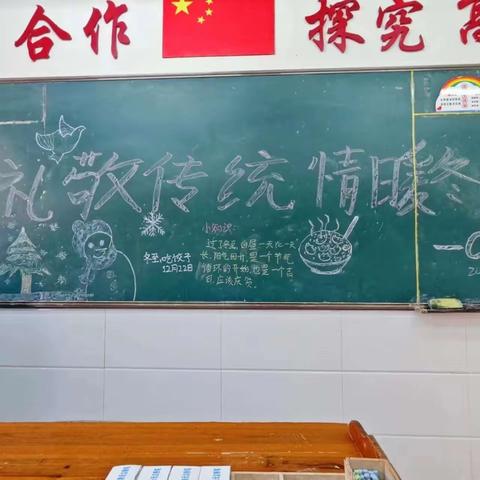 合作 探究 高
礼敬传统 情暖冬
小知识:
过了冬至,白昼一天比一天
长,阳气回升,是一个节气
循环的开始,也是一个吉
日,应该庆贺。
冬至,吃饺子
12月22日